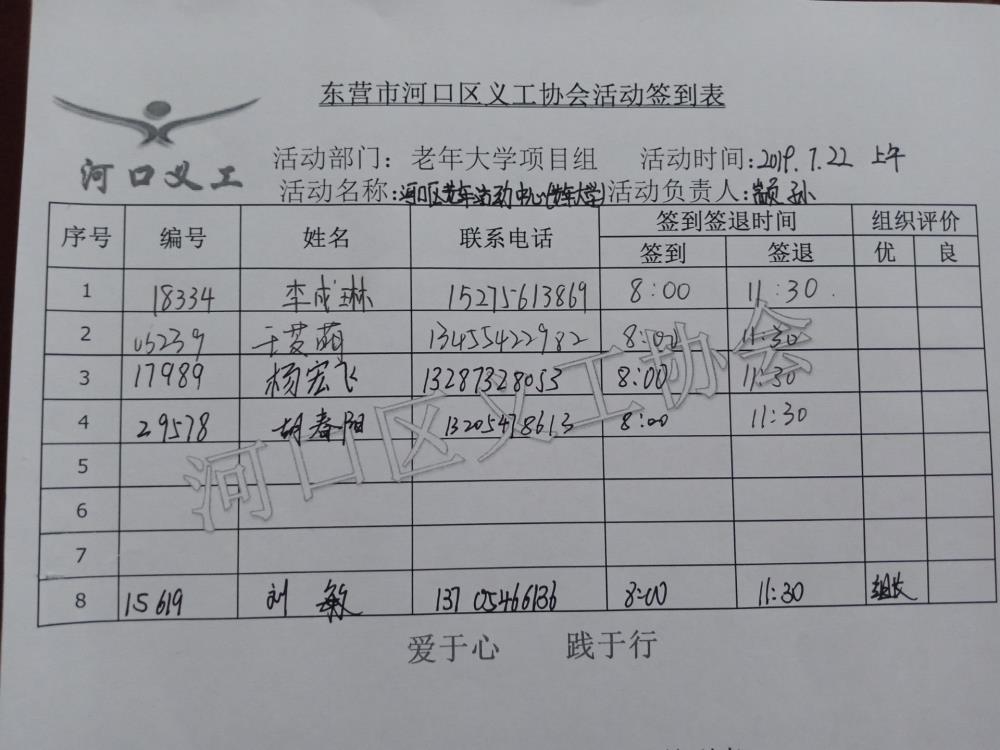 东营市河口区义工协会活动签到表
河口义工
活动部门：老年大学项目组 活动时间：2019.7.22 上午
活动名称：河口区老年活动中心(老年大学) 活动负责人：颛孙
序号 编号 姓名 联系电话 签到签退时间 组织评价
签到 签退 优 良
1 18334 李成琳 15275613869 8:00 11:30
2 05239 王艾萌 13455422982 8:00 11:30
3 17989 杨宏飞 13287328053 8:00 11:30
4 29578 胡春阳 13205478613 8:00 11:30
5
6
7
8 15619 刘敏 13705466136 8:00 11:30 组长
河口区义工协会
爱于心 践于行